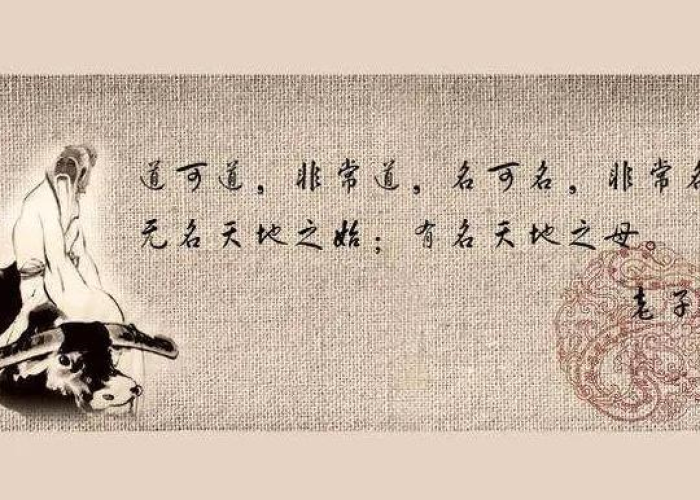 道可道，非常道，名可名，非常名
无名天地之始；有名天地之母。
老子